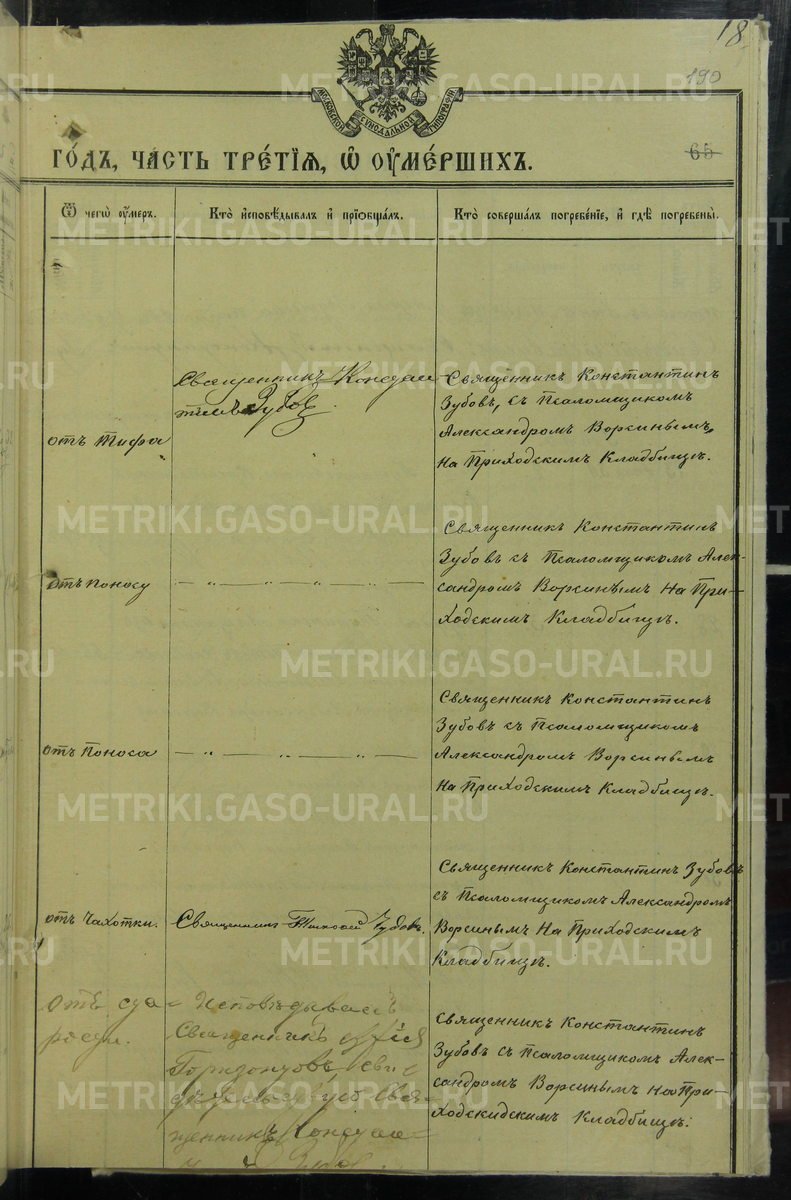 18
190
МОСКОВСКОЙ СѴНОДАЛЬНОЙ ТИПОГРАФІИ
65
ГО́ДЪ, ЧА́СТЬ ТРЕ́ТІѦ, Ѡ҆ ОУ҆МЕ́РШИХЪ.
Ѿ чегѡ̀ оу҆́меръ.
Кто̀ и҆сповѣ́дывалъ и҆ прїѡбща́лъ.
Кто̀ соверша́лъ погребе́нїе, и҆ гдѣ̀ погребены̀.
отъ Тифа
Священникъ Констан-
тинъ Зубов
Священникъ Константинъ
Зубовъ, съ Псаломщикомъ
Александромъ Ворсинымъ,
На Приходскимъ Кладбищъ.
отъ Поносу
— „ — „ — „ —
Священникъ Константинъ
Зубовъ съ Псаломщикомъ Алек-
сандромъ Ворсинымъ На При-
ходскимъ Кладбищъ.
отъ Поноса
— „ — „ — „ —
Священникъ Константинъ
Зубовъ съ Псаломщикомъ
Александромъ Ворсинымъ
На Приходскимъ Кладбищъ.
отъ Чахотки.
Священникъ Зубовъ.
Священникъ Константинъ Зубовъ
съ Псаломщикомъ Александромъ
Ворсинымъ На Приходскимъ
Кладбищъ.
отъ ста-
рости.
Исповѣдывалъ
Священникъ
свя-
щенникъ Констан-
Зубов.
Священникъ Константинъ
Зубовъ съ Псаломщикомъ Алек-
сандромъ Ворсинымъ На При-
ходскидскимъ Кладбищъ.
METRIKI.GASO-URAL.RU